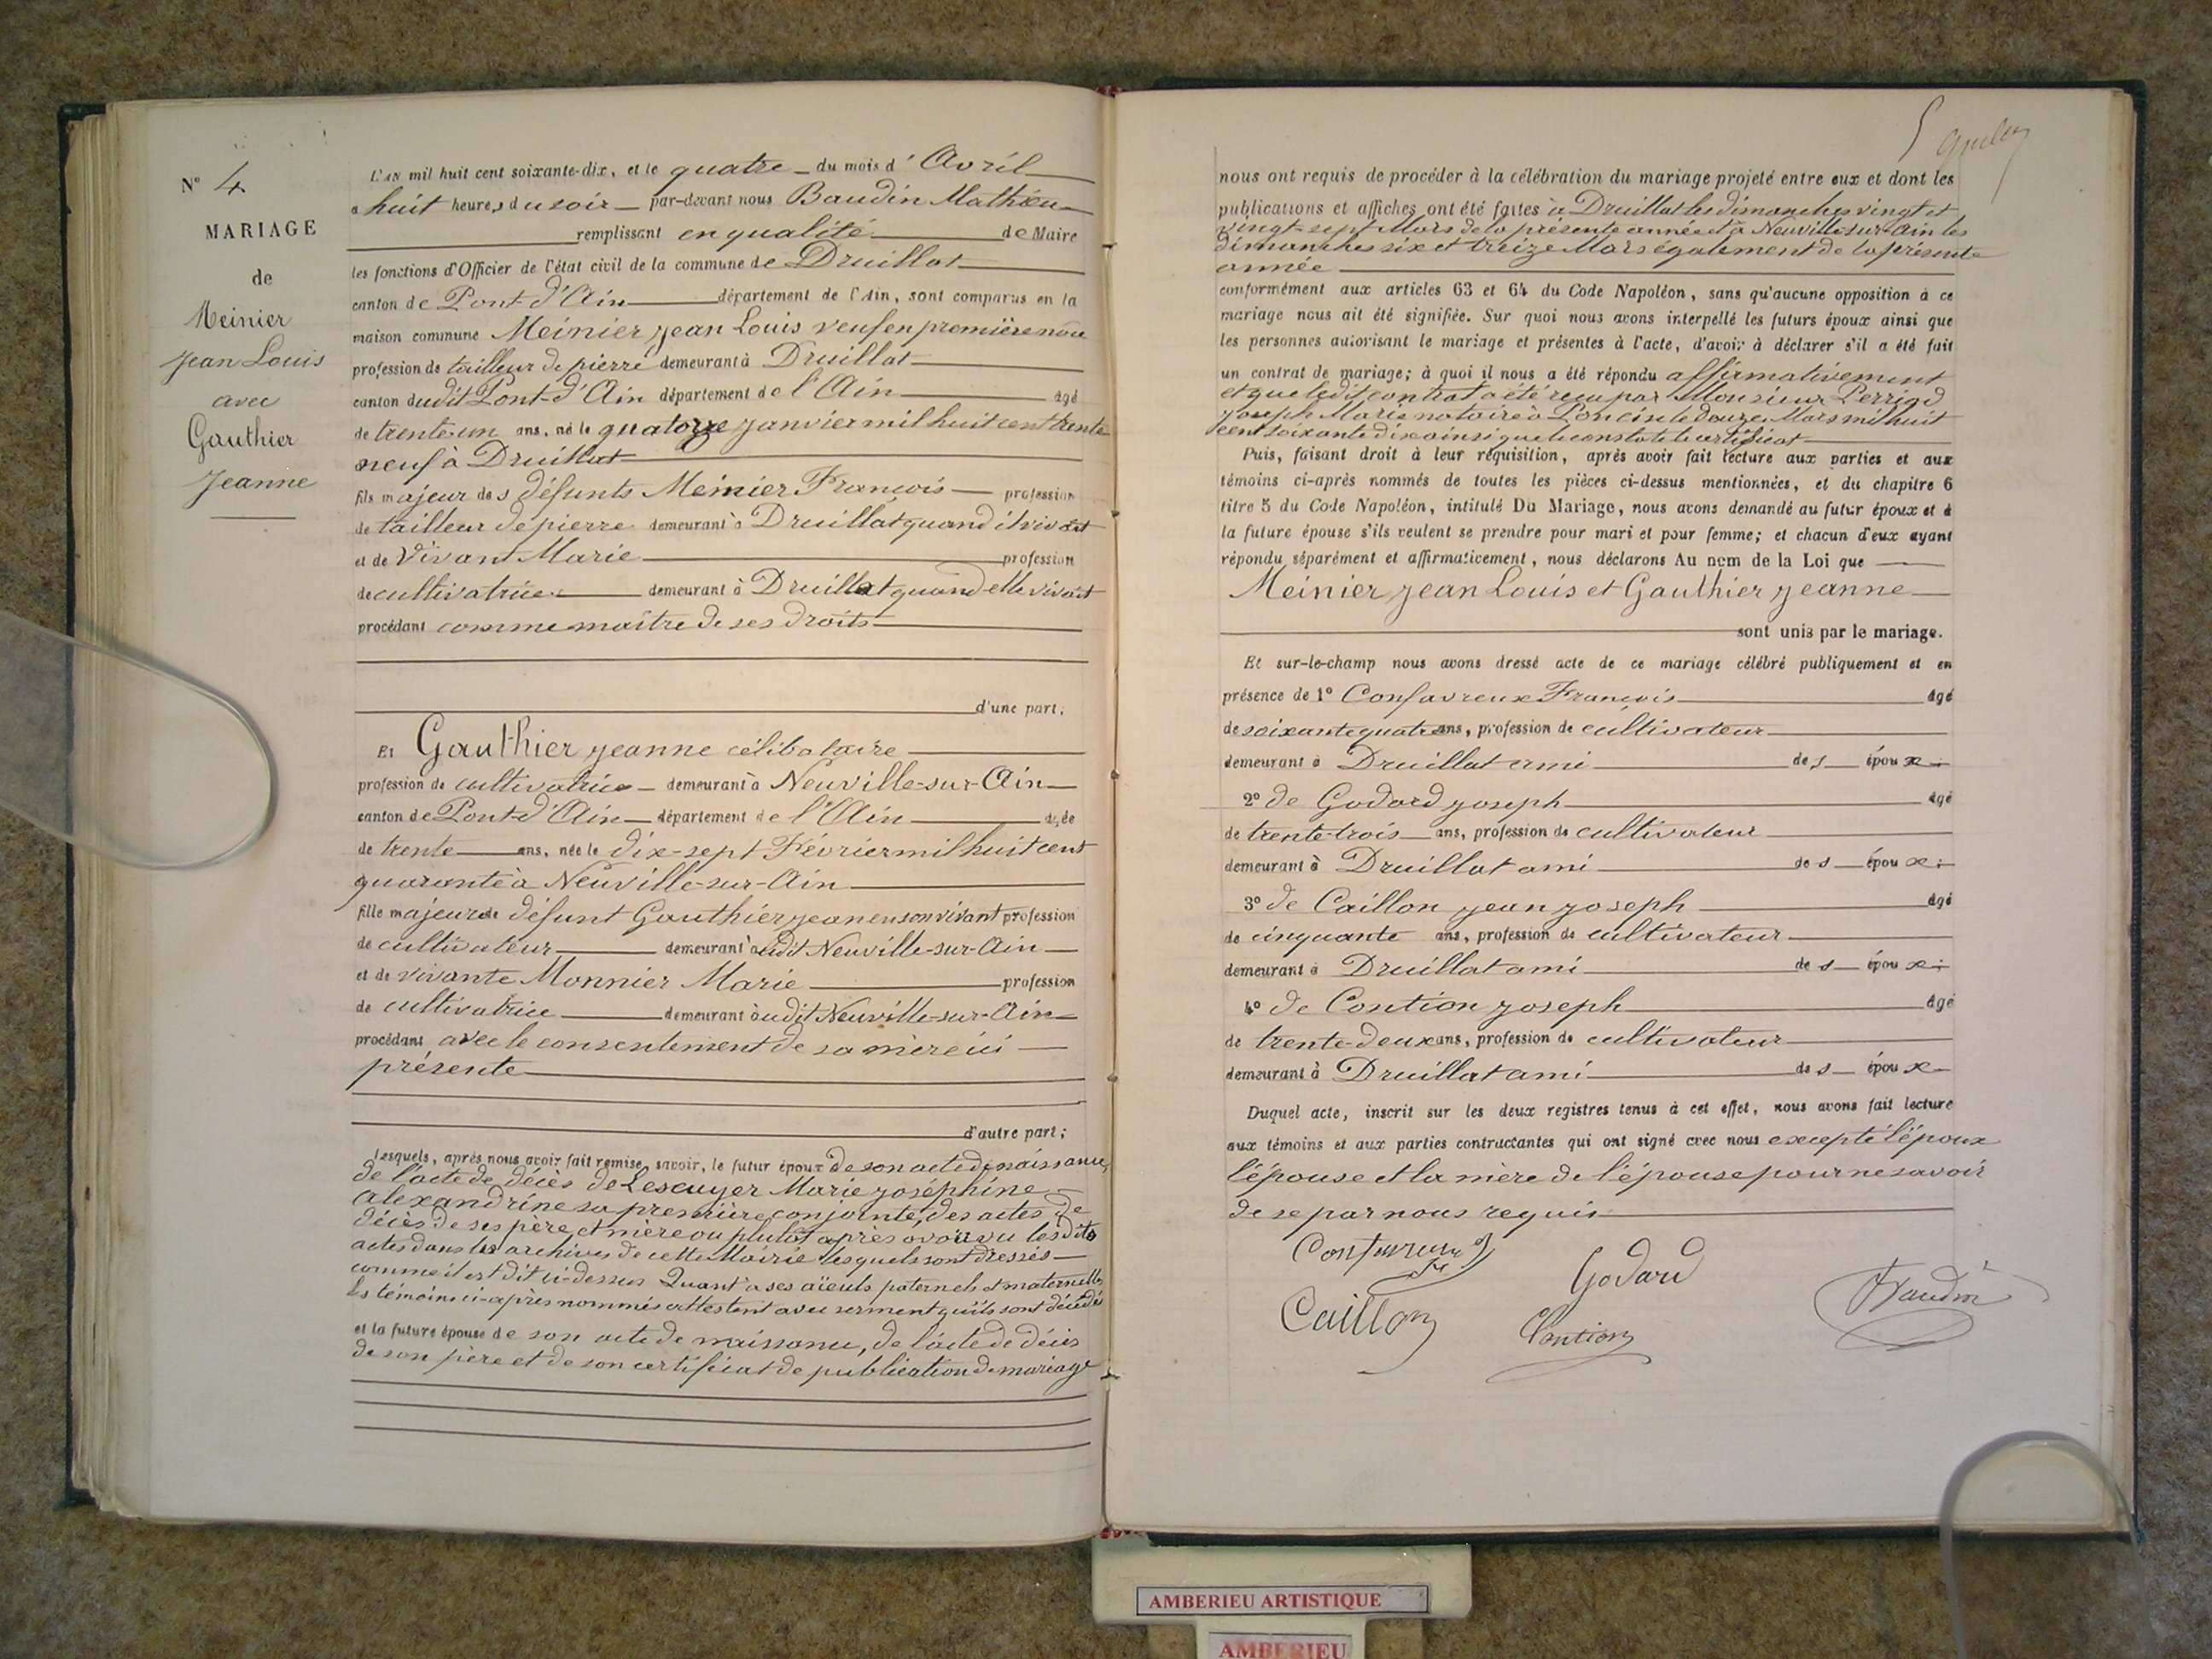 N° 4
MARIAGE
de
Meinier
Jean Louis
avec
Gauthier
Jeanne
L'AN mil huit cent soixante-dix, et le quatre du mois d'Avril
a huit heures du soir par-devant nous Baudin Mathieu
remplissant en qualité de Maire
les fonctions d'Officier de l'état civil de la commune de Druillat
canton de Pont-d'Ain département de l'Ain, sont comparus en la
maison commune Meinier Jean Louis veuf en première noce
profession de tailleur de pierre demeurant à Druillat
canton dudit Pont-d'Ain département de l'Ain âgé
de trente un ans, né le quatorze Janvier mil huit cent trente
neuf à Druillat
fils majeur des défunts Meinier François profession
de tailleur de pierre demeurant à Druillat quand il vivait
et de Vivant Marie profession
de cultivatrice demeurant à Druillat quand elle vivait
procédant comme maître de ses droits
d'une part;
Et Gauthier Jeanne célibataire
profession de cultivatrice demeurant à Neuville-sur-Ain
canton de Pont-d'Ain département de l'Ain âgée
de trente ans, née le dix-sept Février mil huit cent
quarante à Neuville-sur-Ain
fille majeure de défunt Gauthier Jean en son vivant profession
de cultivateur demeurant audit Neuville-sur-Ain
et de vivante Monnier Marie profession
de cultivatrice demeurant audit Neuville-sur-Ain
procédant avec le consentement de sa mère ici
présente
d'autre part;
lesquels, après nous avoir fait remise, savoir, le futur époux de son acte de naissance,
de l'acte de décès de Lescuyer Marie Joséphine
Alexandrine sa première conjointe, des actes de
décès de ses père et mère ou plutôt après avoir vu lesdits
actes dans les archives de cette Mairie lesquels sont dressés
comme il est dit ci-dessus Quant à ses aïeuls paternels et maternels
les témoins ci-après nommés attestent avec serment qu'ils sont décédés
et la future épouse de son acte de naissance, de l'acte de décès
de son père et de son certificat de publication de mariage
nous ont requis de procéder à la célébration du mariage projeté entre eux et dont les
publications et affiches ont été faites à Druillat les dimanches vingt et
vingt-sept Mars de la présente année et à Neuville-sur-Ain les
dimanches six et treize Mars également de la présente
année
conformément aux articles 63 et 64 du Code Napoléon, sans qu'aucune opposition à ce
mariage nous ait été signifiée. Sur quoi nous avons interpellé les futurs époux ainsi que
les personnes autorisant le mariage et présentes à l'acte, d'avoir à déclarer s'il a été fait
un contrat de mariage; à quoi il nous a été répondu affirmativement
et que ledit contrat a été reçu par Monsieur Perrind
Joseph Marie notaire à Poncin le douze Mars mil huit
cent soixante dix ainsi que le constate le certificat
Puis, faisant droit à leur réquisition, après avoir fait lecture aux parties et aux
témoins ci-après nommés de toutes les pièces ci-dessus mentionnées, et du chapitre 6
titre 5 du Code Napoléon, intitulé Du Mariage, nous avons demandé au futur époux et à
la future épouse s'ils veulent se prendre pour mari et pour femme; et chacun d'eux ayant
répondu séparément et affirmativement, nous déclarons Au nom de la Loi que
Meinier Jean Louis et Gauthier Jeanne
sont unis par le mariage.
Et sur-le-champ nous avons dressé acte de ce mariage célébré publiquement et en
présence de 1° Confavreux François âgé
de soixante quatre ans, profession de cultivateur
demeurant à Druillat ami des époux;
2° de Godard Joseph âgé
de trente-trois ans, profession de cultivateur
demeurant à Druillat ami des époux;
3° de Caillon Jean Joseph âgé
de cinquante ans, profession de cultivateur
demeurant à Druillat ami des époux;
4° de Contion Joseph âgé
de trente-deux ans, profession de cultivateur
demeurant à Druillat ami des époux
Duquel acte, inscrit sur les deux registres tenus à cet effet, nous avons fait lecture
aux témoins et aux parties contractantes qui ont signé avec nous excepté l'époux
l'épouse et la mère de l'épouse pour ne savoir
de se par nous requis
Confavreux
Godard
Baudin
Caillon
Contion
AMBERIEU ARTISTIQUE
AMBERIEU